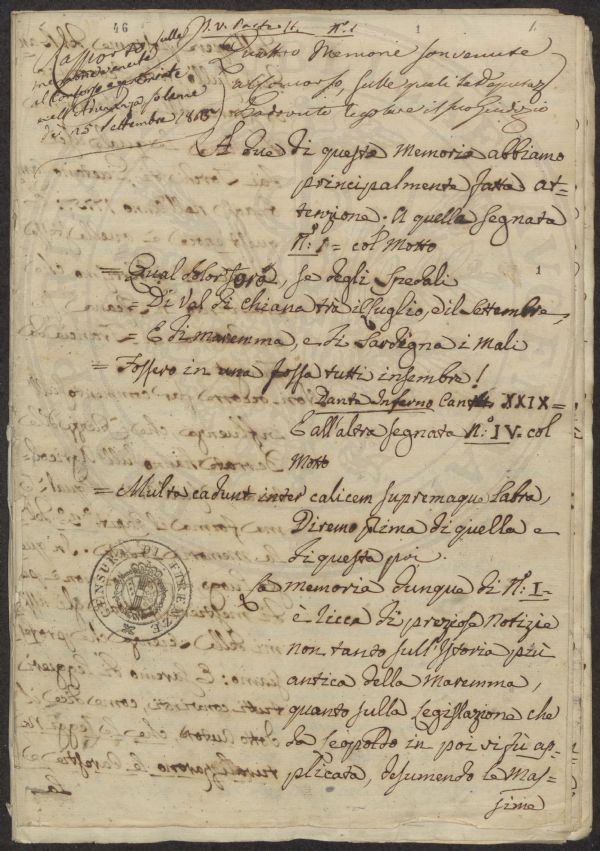 46
N. 1
1
1.
Rapporto sulle
al Concorso
nell'Adunanza solenne
del 25 Settembre
Quattro Memorie son venute
al Concorso, sulle quali la Deputaz.
ha dovuto regolare il suo Giudizio
A due di queste Memorie abbiamo
principalmente fatta at-
tenzione. A quella segnata
N.º I = col Motto
= Qual dolor fora, se degli Spedali
1
= Di Val di chiana tra il luglio, e il Settembre,
= E di maremma, e di Sardigna i mali
= Fossero in una fossa tutti insembre!
Dante Inferno Canto XXIX =
E all'altra segnata N.º IV = col
Motto
= Multa cadunt inter calicem supremaque labra,
Diremo prima di quella e
di questa poi.
La memoria dunque di N.º I =
è ricca di preziose Notizie
non tando sull'Istoria più
antica della Maremma,
quanto sulla Legislazione che
da Leopoldo in poi vi fù ap-
plicata, desumendo le Mas-
sime
CENSURA DI FIRENZE